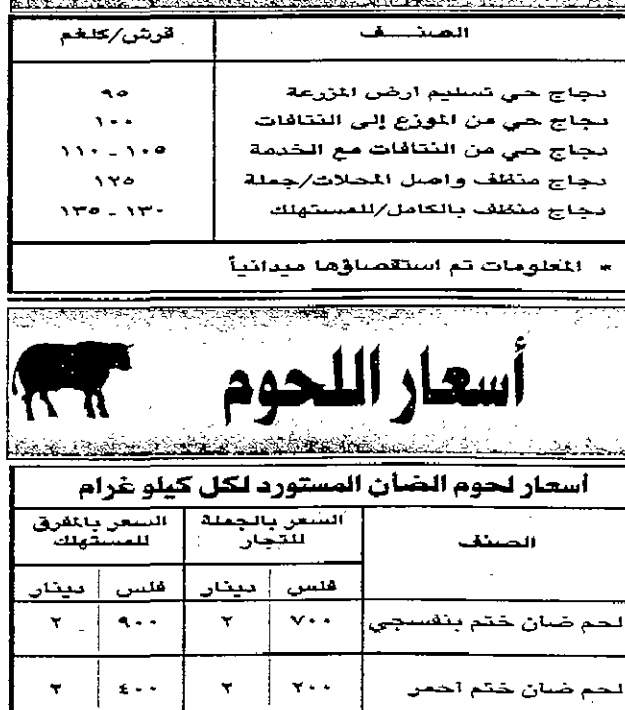 الصنـــف قرش/كلغم
دجاج حي تسليم ارض المزرعة ٩٥
دجاج حي من الموزع إلى النتافات ١٠٠
دجاج حي من النتافات مع الخدمة ١٠٥ ـ ١١٠
دجاج منظف واصل المحلات/جملة ١٢٥
دجاج منظف بالكامل/للمستهلك ١٣٠ ـ ١٣٥
* المعلومات تم استقصاؤها ميدانياً
أسعار اللحوم
أسعار لحوم الضأن المستورد لكل كيلو غرام
الصنف السعر بالجملة للتجار السعر بالمفرق للمستهلك
فلس دينار فلس دينار
لحم ضان ختم بنفسجي ٧٠٠ ٢ ٩٠٠ ٢
لحم ضان ختم احمر ٢٠٠ ٤٠٠